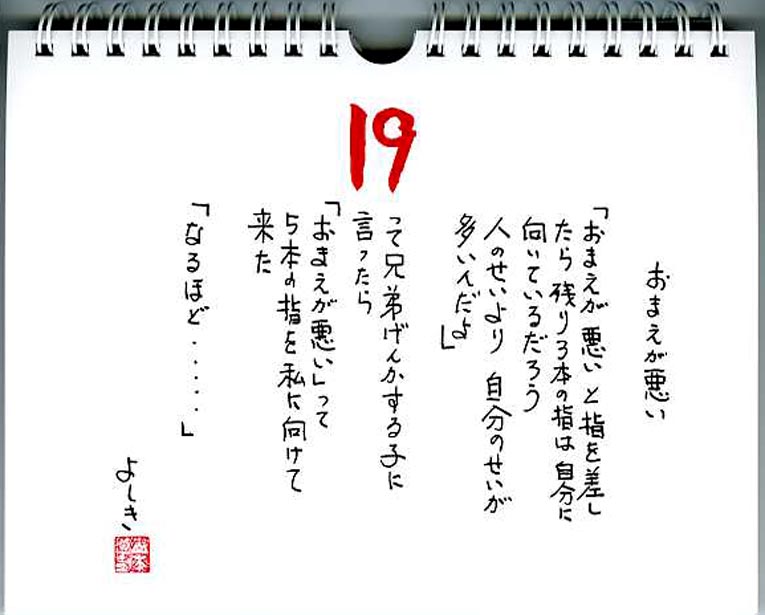 19
おまえが悪い
「おまえが悪いと指を差し
たら残り3本の指は自分に
向いているだろう
人のせいより 自分のせいが
多いんだよ」
って兄弟げんかする子に
言ったら
「おまえが悪い」って
5本の指を私に向けて
来た
「なるほど・・・・・」
よしき